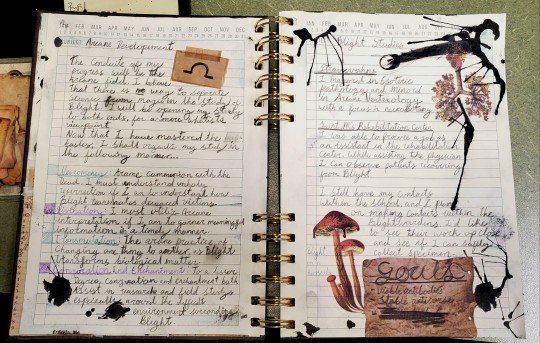 JAN FEB MAR APR MAY JUN JUL AUG SEP OCT NOV DEC
SUBJECT Arcane Development
The Conduit of my
progress will be the
Arcane field. I believe
that there is no way to separate
science from magic in the study of
Blight. I will be steering my study
to both ends, for a more complete
viewpoint.
Now that I have mastered the
basics, I shall organize my study in
the following manner...
Necromancy: Arcane communion with the
Dead. I must understand unholy
resurrection if I am to understand how
Blight reanimates deceased victims.
Divination: I must utilize Arcane
interpretation if I am to garner meaningful
information in a timely manner.
Transmutation: The arcane practice of
changing one thing to another as Blight
transforms biological matter.
Conjuration and Enchantment: To a lesser
Degree, Conjuration and enchantment both
Assist in research and field studies
especially around the difficult
environment surrounding
Blight.
JAN FEB MAR APR MAY JUN JUL AUG
Blight Studies
I majored in Esoteric
Pathology and Minored
in Arcane
with a focus in
Rehabilitation Center
I was able to procure a job as
an assistant in the rehabilitation
center. While assisting the physician
I can observe patients recovering
from Blight
I still have my contacts
within the school and I plan
on making contacts within the
Blightguards. I'd like
to see them work up close
and see if I can
collect specimen.
Goals
Viable antibodies
Stable